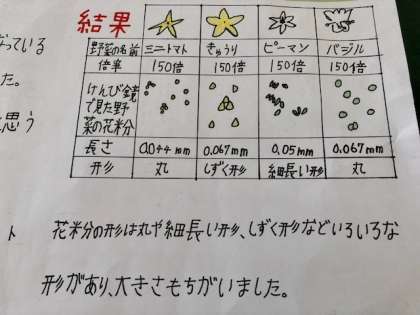 なっている
た。
思う
結果
野菜の名前 ミニトマト きゅうり ピーマン バジル
倍率 150倍 150倍 150倍 150倍
けんび鏡
で見た野
菜の花米分
長さ 0.044mm 0.067mm 0.05mm 0.067mm
形 丸 しずく形 細長い形 丸
ト
花米分の形は丸や細長い形、しずく形などいろいろな
形があり、大きさもちがいました。